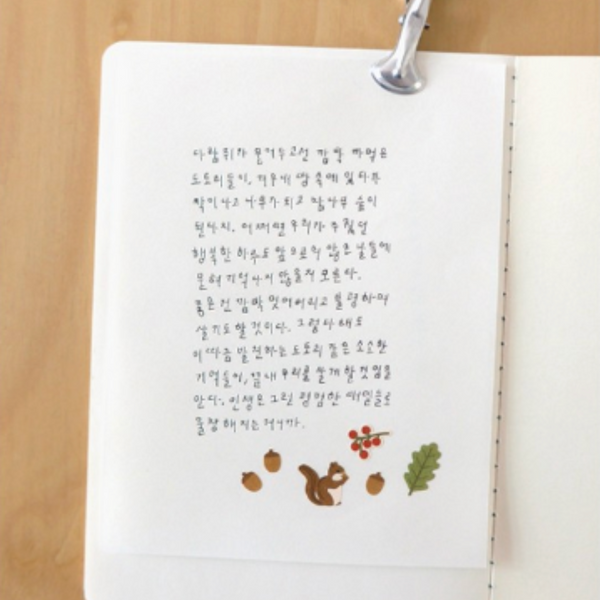 다람쥐가 묻어두고선 깜빡 까먹은
도토리들이, 겨우내 땅 속에 있다가
싹이 나고 나무가 되고 참나무 숲이
된다지. 어쩌면 우리가 수집한
행복한 하루도 앞으로의 많은 날들에
묻혀 기억나지 않을지 모른다.
좋은 건 깜빡 잊어버리고 불평하며
살기도 할 것이다. 그렇다 해도
이따금 발견하는 도토리 같은 소소한
기억들이, 끝내 우리를 살게 할 것임을
안다. 인생은 그런 평범한 매일들로
울창해지는 거니까.